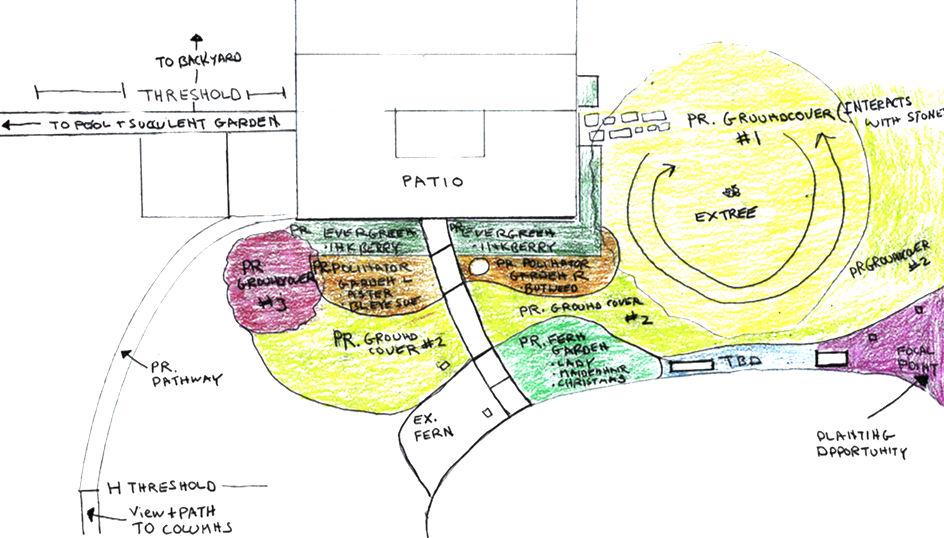 TO BACKYARD
THRESHOLD
TO POOL + SUCCULENT GARDEN
PATIO
PR. GROUNDCOVER (INTERACTS
#1 WITH STONE
EX TREE
PR GROUNDCOVER
#2
PR EVERGREEN
·INKBERRY
PR EVERGREEN
·INKBERRY
PR
GROUNDCOVER
#3
PR POLLINATOR
GARDEN L
ASTER
BL EYE SUE
PR POLINATOR
GARDEN R
BUTWEED
PR. GROUND COVER
#2
PR. GROUND
COVER #2
PR. FERN
GARDEN
·LADY
·MAIDENHAIR
·CHRISTMAS
TBD
FOCAL
POINT
PLANTING
OPPORTUNITY
EX.
FERN
PR.
PATHWAY
THRESHOLD
View + PATH
TO COLUMNS